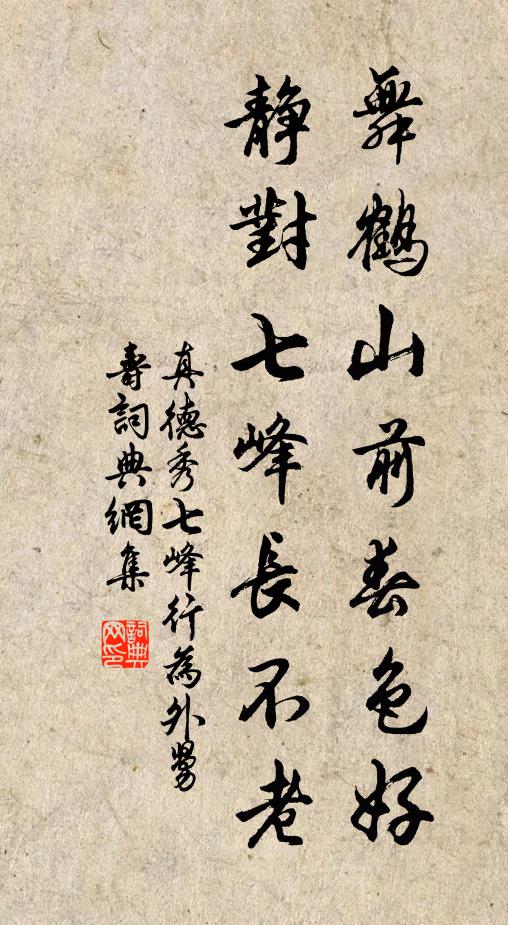 舞鶴山前春色好
静對七峰長不老
真德秀七峰行為外舅
壽詞典網集
詞典网印